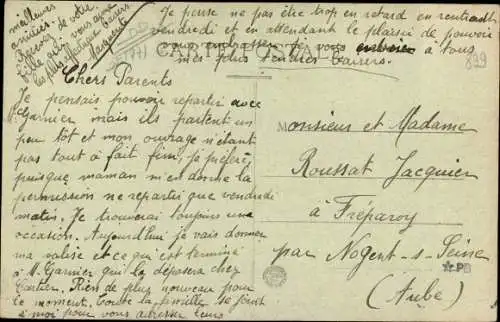 Chers Parents
Je pensais pouvoir repartir avec
M. Garnier mais ils partent un
peu tôt et mon ouvrage n'étant
pas tout à fait fini, j'ai préféré
puisque maman m'est donne la
permission ne repartir que vendredi
matin. Je trouverai toujours une
occasion. Aujourd'hui je vais donner
ma valise et ce qui est terminé
à M. Garnier qui la déposera chez
Cartier. Rien de plus nouveau pour
le moment. Toute la famille se joint
à moi pour vous adresser leurs
meilleures
amitiés.
Recevez de votre
fille qui vous aime
les plus doux baisers
Marguerite
Je pense ne pas être trop en retard en rentrant
vendredi et en attendant le plaisir de pouvoir
vous embrasser je vous envoie à tous
mes plus tendres baisers.
CARTE POSTALE
829
Monsieur et Madame
Roussat Jacquier
à Fréparoy
par Nogent-s-Seine
(Aube)